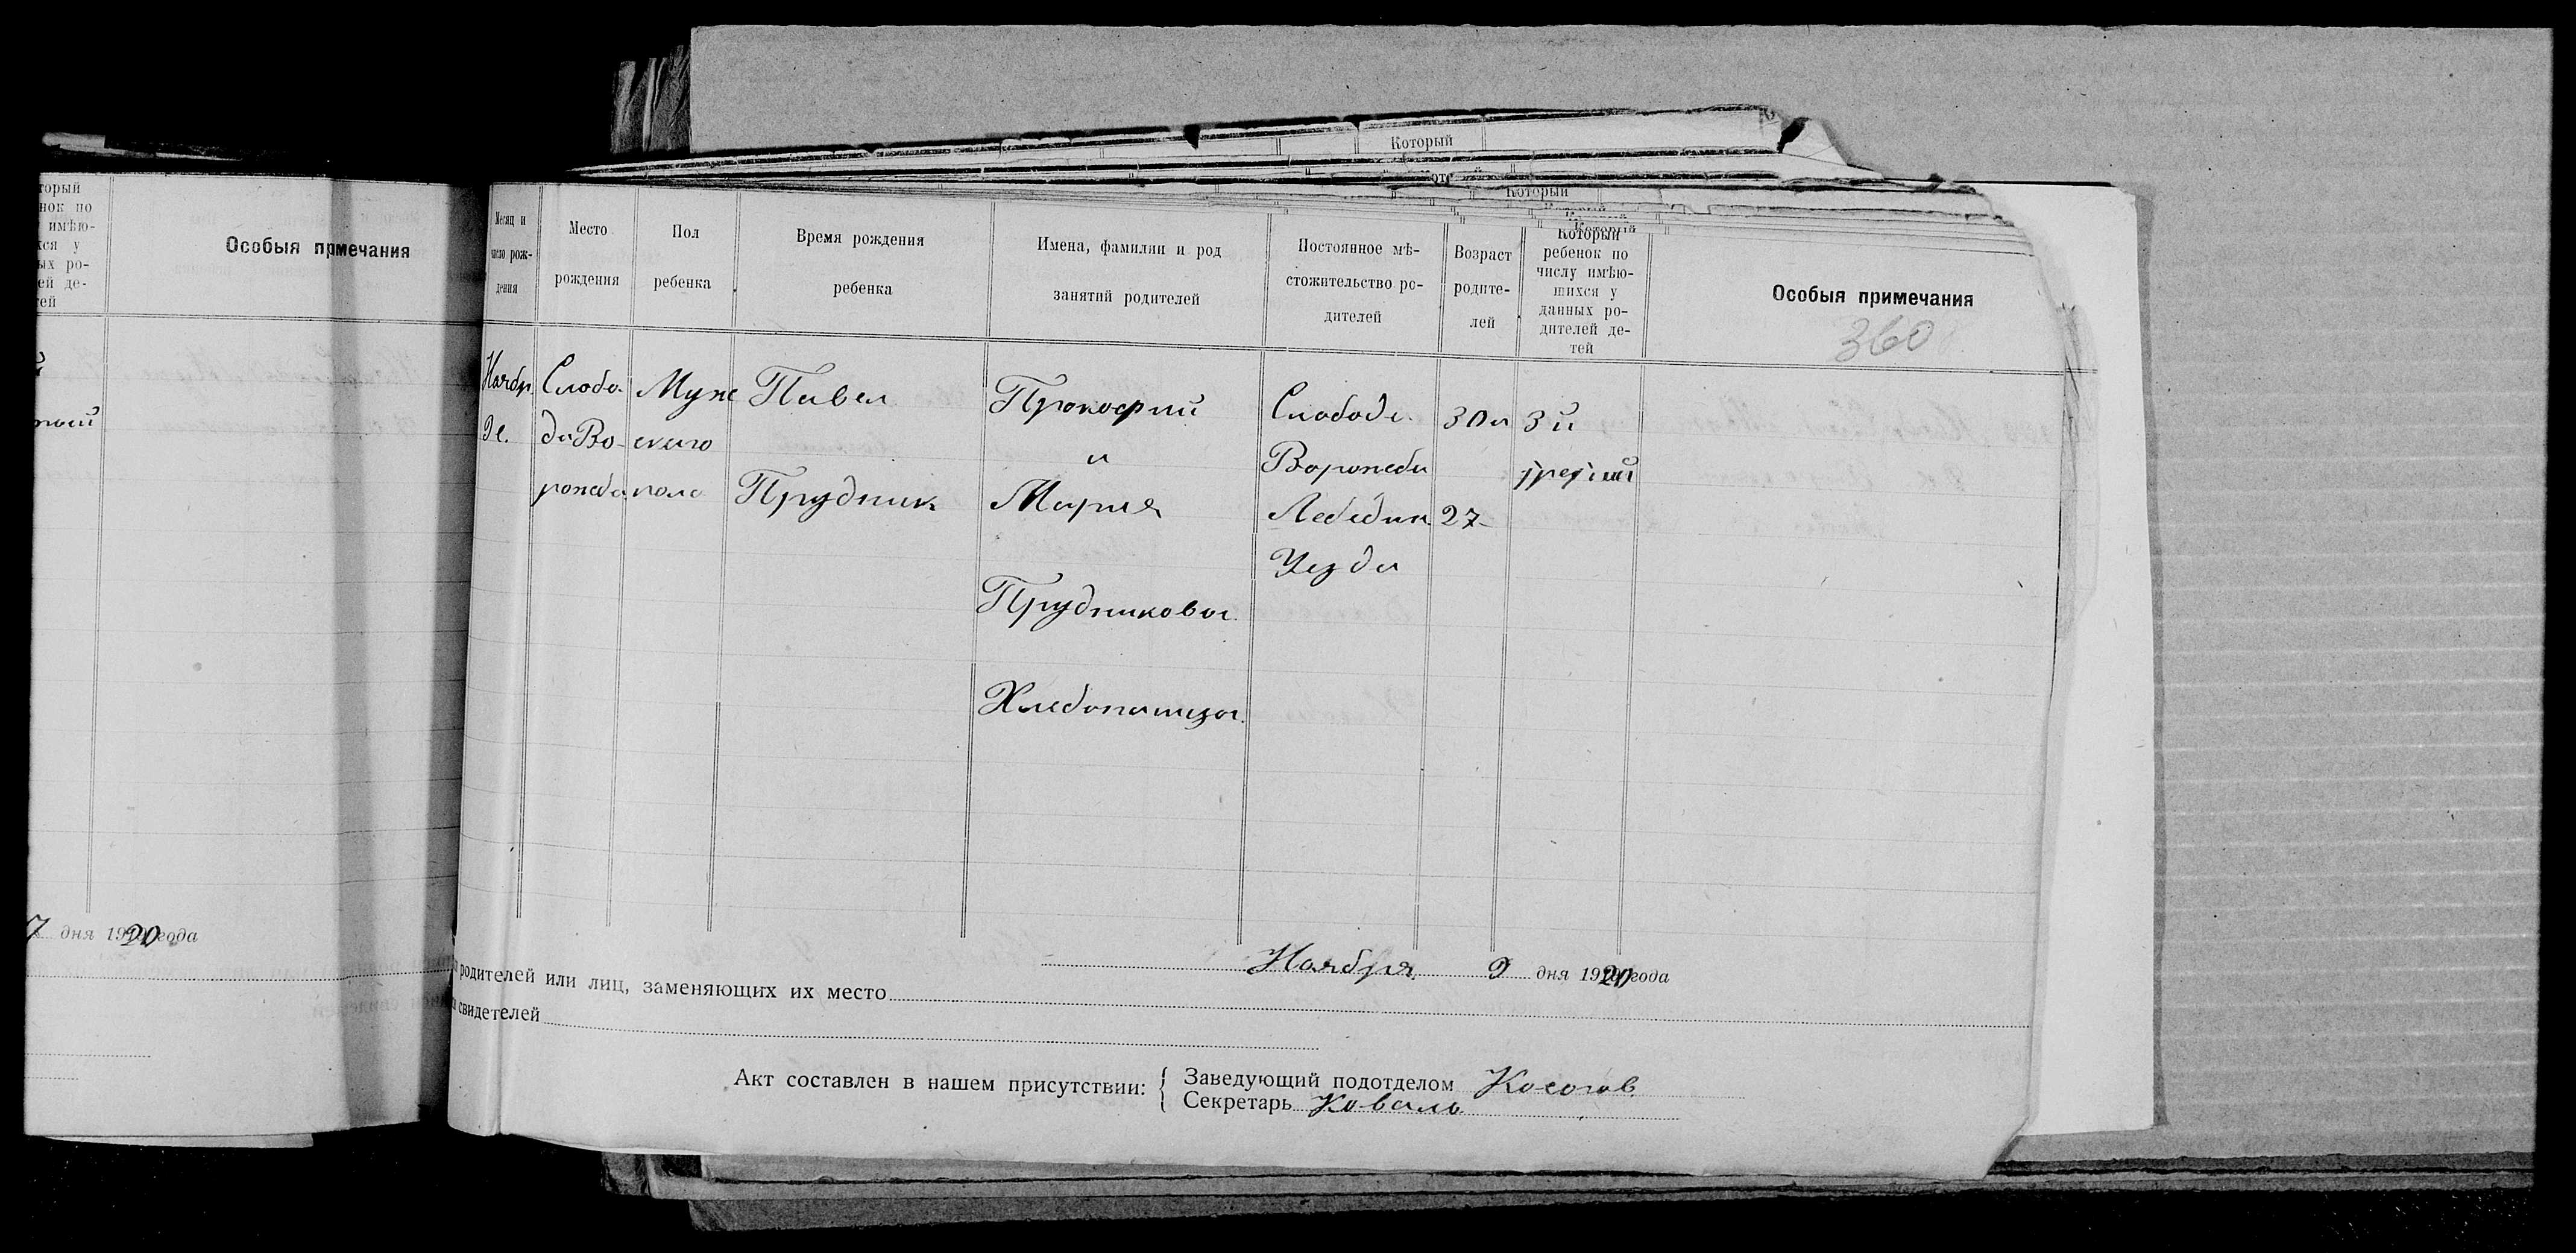 Который
Который
торый
нок по
имѣю-
хся у
ых ро-
ей де-
тей
Особыя прмечания
й
тий
7 дня 1920 года
Месяц и
число рож-
дения
Место
рождения
Пол
ребенка
Время рождения
ребенка
Имена, фамилии и род
занятий родителей
Постоянное мѣ-
стожительство ро-
дителей
Возраст
родите-
лей
Который
ребенок по
числу имѣю-
шихся у
данных ро-
дителей де-
тей
Особыя примечания
360
Ноябр
9е.
Слобо-
да Во-
рожба
Муже
ского
пола
Павел
Прудник
Прокофий
и
Мария
Прудниковы
Хлебопашцы.
Слобода
Ворожба
Лебедин.
Уезда
30 и
27-
3 й
третий
Ноября 9 дня 1920 года
родителей или лиц, заменяющих их место
свидетелей
Акт составлен в нашем присутствии:
Заведующий подотделом Косогов
Секретарь Коваль